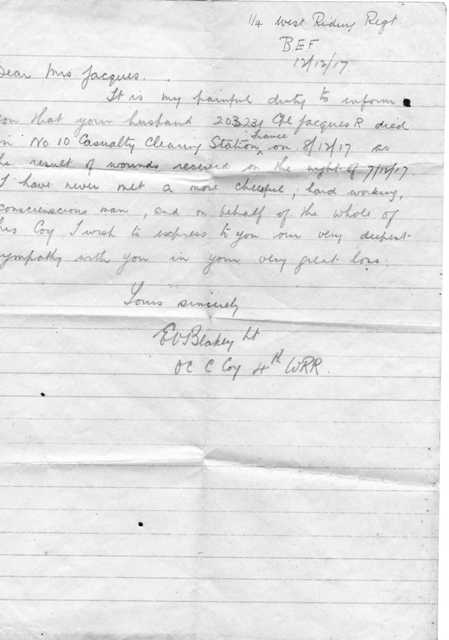 1/4 West Riding Regt
BEF
12/12/17
Dear Mrs Jacques.
It is my painful duty to inform
you that your husband 203231 Cpl Jacques R died
in No 10 Casualty Clearing Station, France on 8/12/17 as
the result of wounds received on the night of 7/12/17
I have never met a more cheerful, hard working,
conscienscious man, and on behalf of the whole of
his Coy I wish to express to you our very deepest
sympathy with you in your very great loss.
Yours sincerely
EVBlakey Lt
OC C Coy 4th WRR.